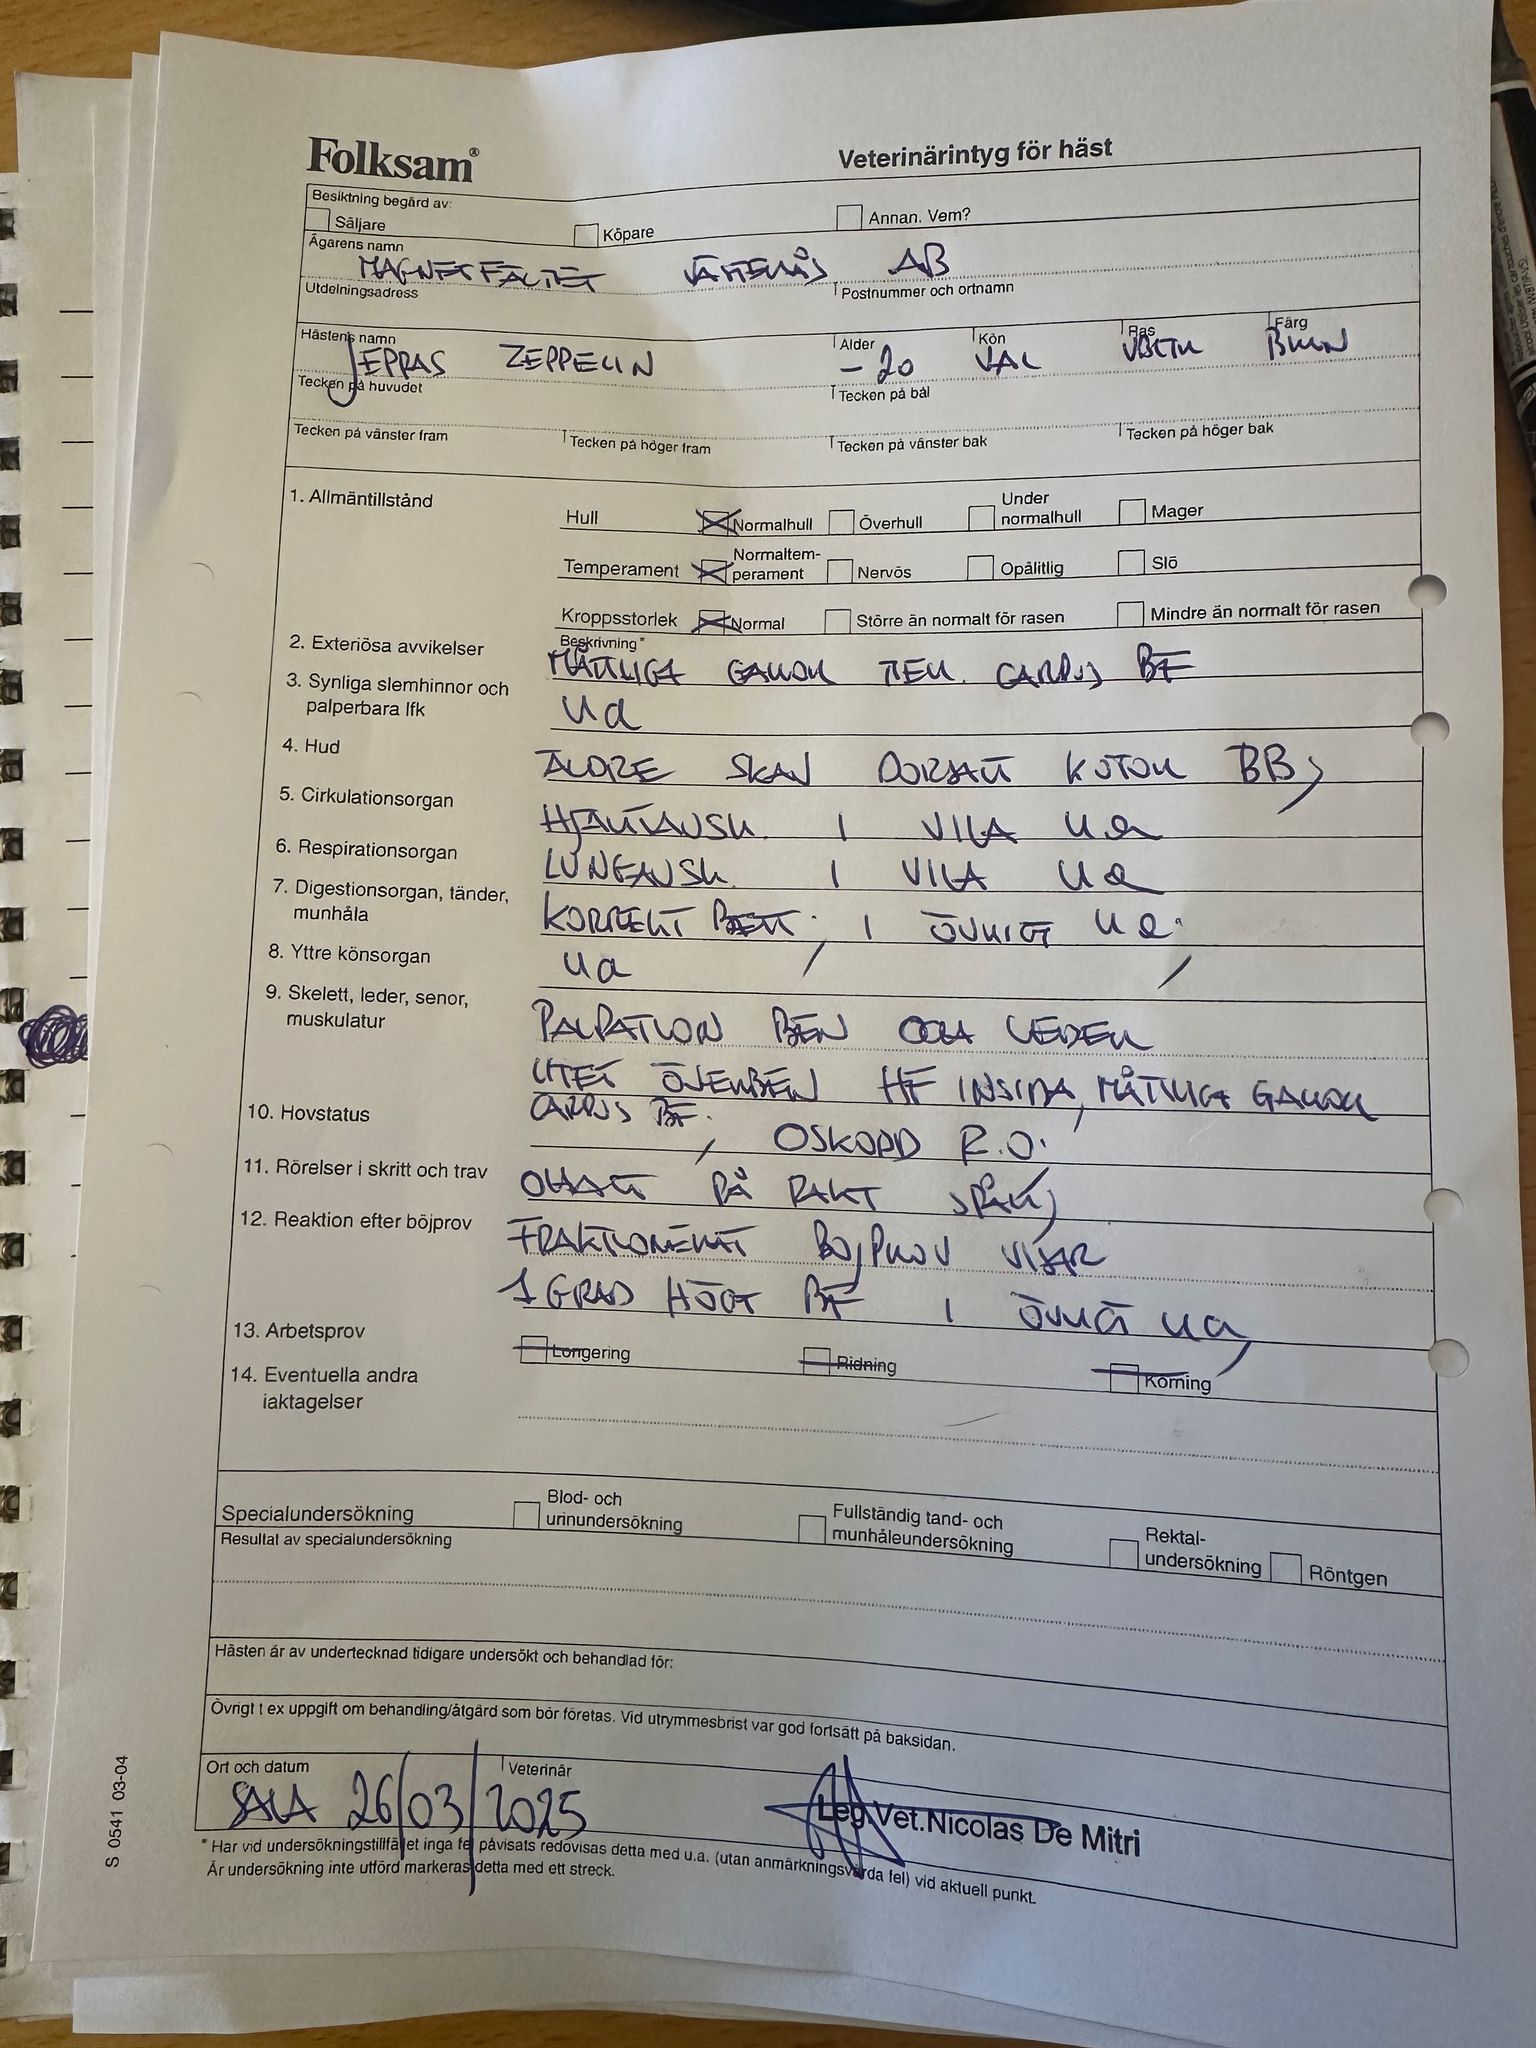 Folksam®
Veterinärintyg för häst
Besiktning begärd av:
Säljare
Köpare
Annan. Vem?
Ägarens namn
MAGNETFÄLTET VÄSTERÅS AB
Utdelningsadress
Postnummer och ortnamn
Hästens namn
Ålder
Kön
Ras
Färg
JEPPAS ZEPPELIN -20 VAL VBLTR BRUN
Tecken på huvudet
Tecken på bål
Tecken på vänster fram
Tecken på höger fram
Tecken på vänster bak
Tecken på höger bak
1. Allmäntillstånd
Hull
Normalhull
Överhull
Under normalhull
Mager
Temperament
Normaltem-
perament
Nervös
Opålitlig
Slö
Kroppsstorlek
Normal
Större än normalt för rasen
Mindre än normalt för rasen
2. Exteriösa avvikelser
Beskrivning*
MÅTTLIGA GALLOR CARPUS BF
3. Synliga slemhinnor och
palperbara lfk
ua
4. Hud
ÄLDRE SKAV DORSALT KOTOR BB,
5. Cirkulationsorgan
HJÄRTAUSK. I VILA ua
6. Respirationsorgan
LUNGAUSK. I VILA ua
7. Digestionsorgan, tänder,
munhåla
KORREKT BETT, I ÖVRIGT ua.
8. Yttre könsorgan
ua
9. Skelett, leder, senor,
muskulatur
PALPATION BEN OCH LEDER
LITET ÖVERBEN HF INSIDA, MÅTTLIGA GALLOR
CARPUS BF.
10. Hovstatus
OSKODD R.O.
11. Rörelser i skritt och trav
OHALT PÅ RAKT SPÅR,
12. Reaktion efter böjprov
FRAKTIONERAT BÖJPROV VISAR
1 GRAD HÖGT BF I ÖVRIGT ua,
13. Arbetsprov
Longering
Ridning
Körning
14. Eventuella andra
iakttagelser
Specialundersökning
Blod- och
urinundersökning
Fullständig tand- och
munhåleundersökning
Rektal-
undersökning
Röntgen
Resultat av specialundersökning
Hästen är av undertecknad tidigare undersökt och behandlad för:
Övrigt t ex uppgift om behandling/åtgärd som bör företas. Vid utrymmesbrist var god fortsätt på baksidan.
Ort och datum
Veterinär
SALA 26/03/2025
Leg.Vet.Nicolas De Mitri
* Har vid undersökningstillfället inga fel påvisats redovisas detta med u.a. (utan anmärkningsvärda fel) vid aktuell punkt.
Är undersökning inte utförd markeras detta med ett streck.
S 0541 03-04